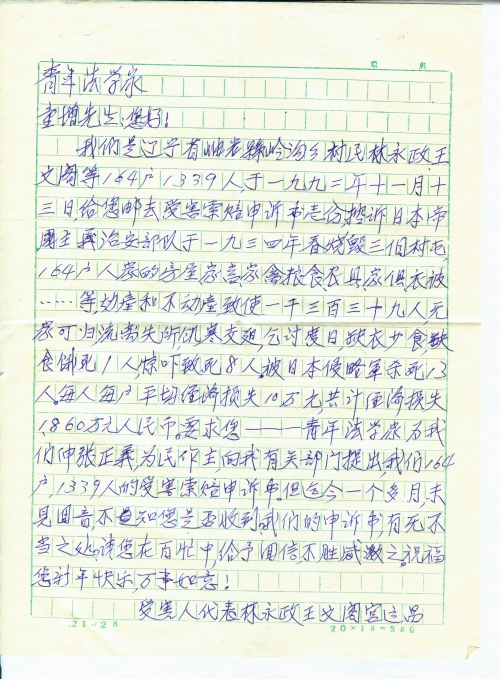 第 页
青年法学家
童增先生:您好!
我们是辽宁省岫岩县岭沟乡村民林永政王
文阁等164户1339人,于一九九二年十一月十
三日给您邮去受害索赔申诉书壱份,控诉日本帝
国主義治安部队于一九三四年春烧毁三個村屯,
164户人家的房屋家畜家禽粮食农具家俱衣被
……等动產和不动產,致使一千三百三十九人,无
家可归流离失所飢寒交迫,乞讨度日,缺衣少食,
食俄死1人,惊吓致死8人,被日本侵略軍杀死13
人,每人每户平均经济损失10万元,共计经济损失
1,860万元人民币。要求您———青年法学家为我
们伸张正義,为民作主向我有关部门提出,我们164
户,1339人的受害索赔申诉书。但迄今一个多月,未
見回音不知您是否收到,我们的申诉书,有无不
当之处,请您在百忙中,给予回信,不胜感激之。祝福
您新年快乐,万事如意!
受害人代表林永政王文阁宫运昌
21-28
20×18=360